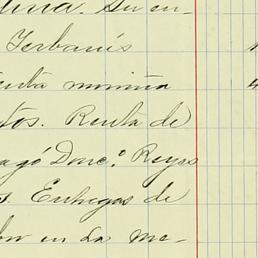 lina. Su en-
Terbanis
minima
tos. Renta de
pagó Danc.º Reyes
s. Entregas de
en La me-